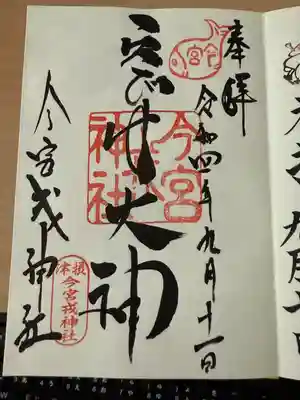 奉拝
令和四年九月十一日
ゑびす大神
今宮戎神社
今宮戎神社
摂津
今宮戎神社